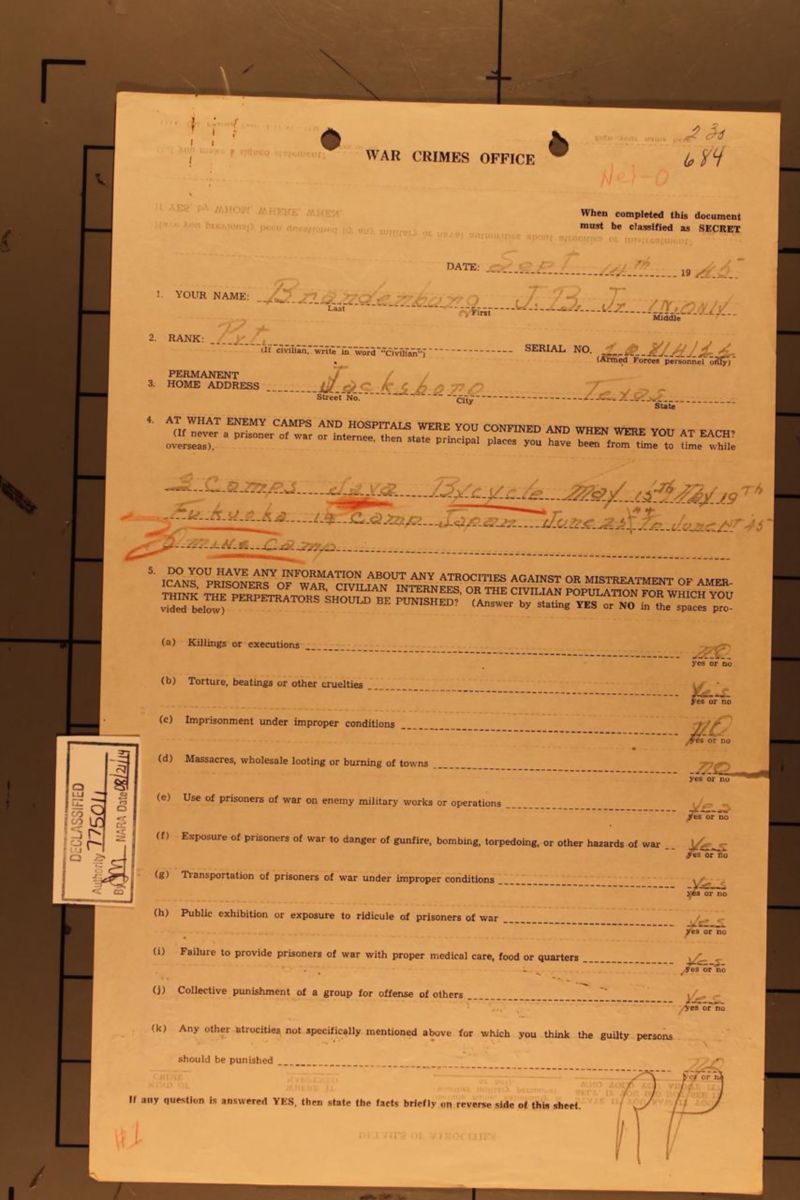 684
WAR CRIMES OFFICE
When completed this document
must be classified as SECRET
DATE: Sept 14th 1945
1. YOUR NAME: Brandenburg J. B. Jr
Last First Middle
2. RANK: Pvt. SERIAL NO.
(If civilian, write in word "Civilian") (Armed Forces personnel only)
PERMANENT
3. HOME ADDRESS Jacksboro Texas
Street No. City State
4. AT WHAT ENEMY CAMPS AND HOSPITALS WERE YOU CONFINED AND WHEN WERE YOU AT EACH?
(If never a prisoner of war or internee, then state principal places you have been from time to time while
overseas),
Camps Java Bycycle May 15th May 19th
Fukuoka 14 Camp Japan June
mine Camp
5. DO YOU HAVE ANY INFORMATION ABOUT ANY ATROCITIES AGAINST OR MISTREATMENT OF AMER-
ICANS, PRISONERS OF WAR, CIVILIAN INTERNEES, OR THE CIVILIAN POPULATION FOR WHICH YOU
THINK THE PERPETRATORS SHOULD BE PUNISHED? (Answer by stating YES or NO in the spaces pro-
vided below)
(a) Killings or executions no
yes or no
(b) Torture, beatings or other cruelties Yes
yes or no
(c) Imprisonment under improper conditions no
yes or no
(d) Massacres, wholesale looting or burning of towns no
yes or no
(e) Use of prisoners of war on enemy military works or operations Yes
yes or no
(f) Exposure of prisoners of war to danger of gunfire, bombing, torpedoing, or other hazards of war Yes
yes or no
(g) Transportation of prisoners of war under improper conditions Yes
yes or no
(h) Public exhibition or exposure to ridicule of prisoners of war Yes
yes or no
(i) Failure to provide prisoners of war with proper medical care, food or quarters Yes
yes or no
(j) Collective punishment of a group for offense of others Yes
yes or no
(k) Any other atrocities not specifically mentioned above for which you think the guilty persons
should be punished no
yes or no
If any question is answered YES, then state the facts briefly on reverse side of this sheet.
#1
DECLASSIFIED
Authority 775011
By NARA Date 08/21/14